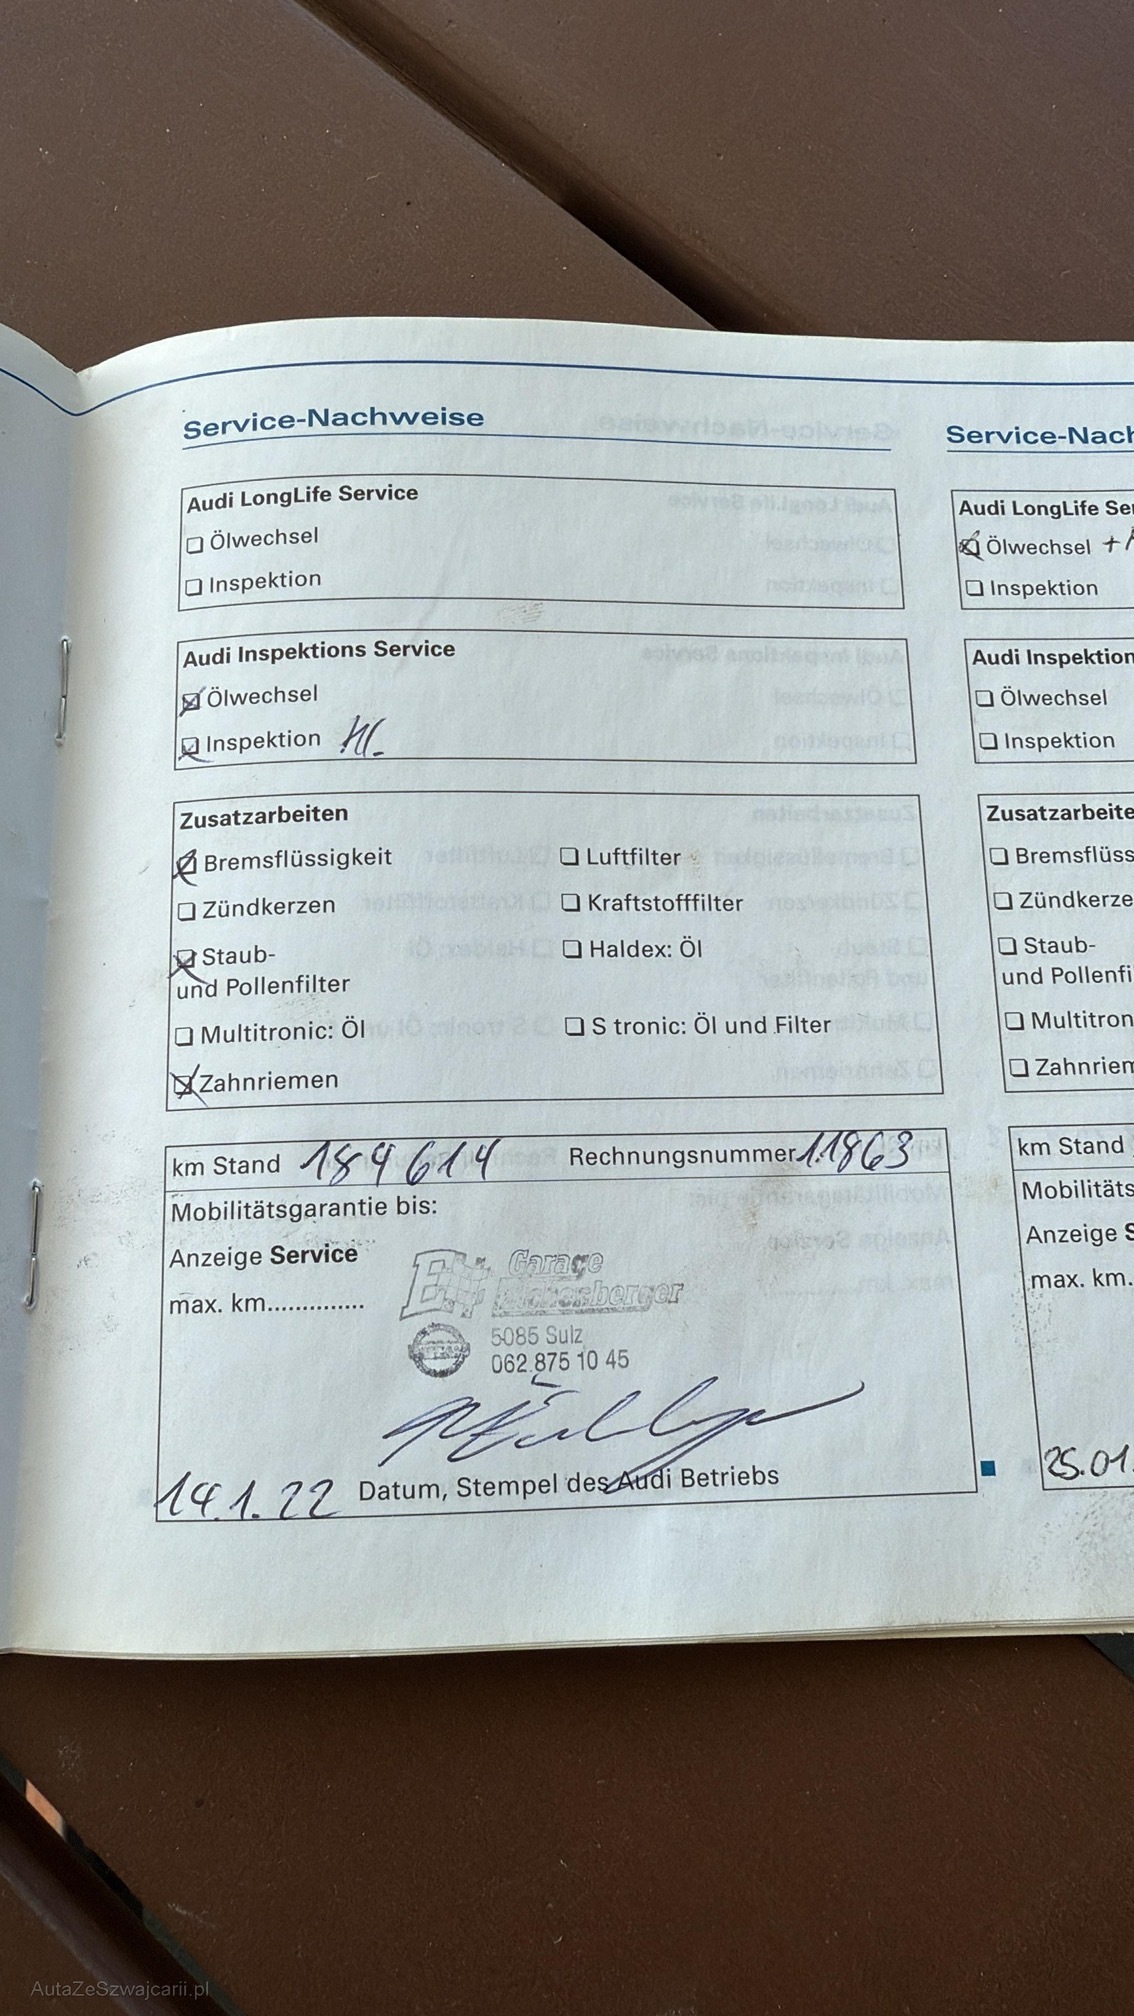 Service-Nachweise
Audi LongLife Service
Ölwechsel
Inspektion
Audi Inspektions Service
Ölwechsel
Inspektion
Zusatzarbeiten
Bremsflüssigkeit
Luftfilter
Zündkerzen
Kraftstofffilter
Staub-
und Pollenfilter
Haldex: Öl
Multitronic: Öl
S tronic: Öl und Filter
Zahnriemen
km Stand 184614 Rechnungsnummer 11863
Mobilitätsgarantie bis:
Anzeige Service
max. km..............
Garage
5085 Sulz
062 875 10 45
14.1.22 Datum, Stempel des Audi Betriebs
Service-Nach
Audi LongLife Ser
Ölwechsel +
Inspektion
Audi Inspektion
Ölwechsel
Inspektion
Zusatzarbeite
Bremsflüss
Zündkerze
Staub-
und Pollenfi
Multitron
Zahnriem
km Stand
Mobilitäts
Anzeige S
max. km.
25.01.
AutaZeSzwajcarii.pl